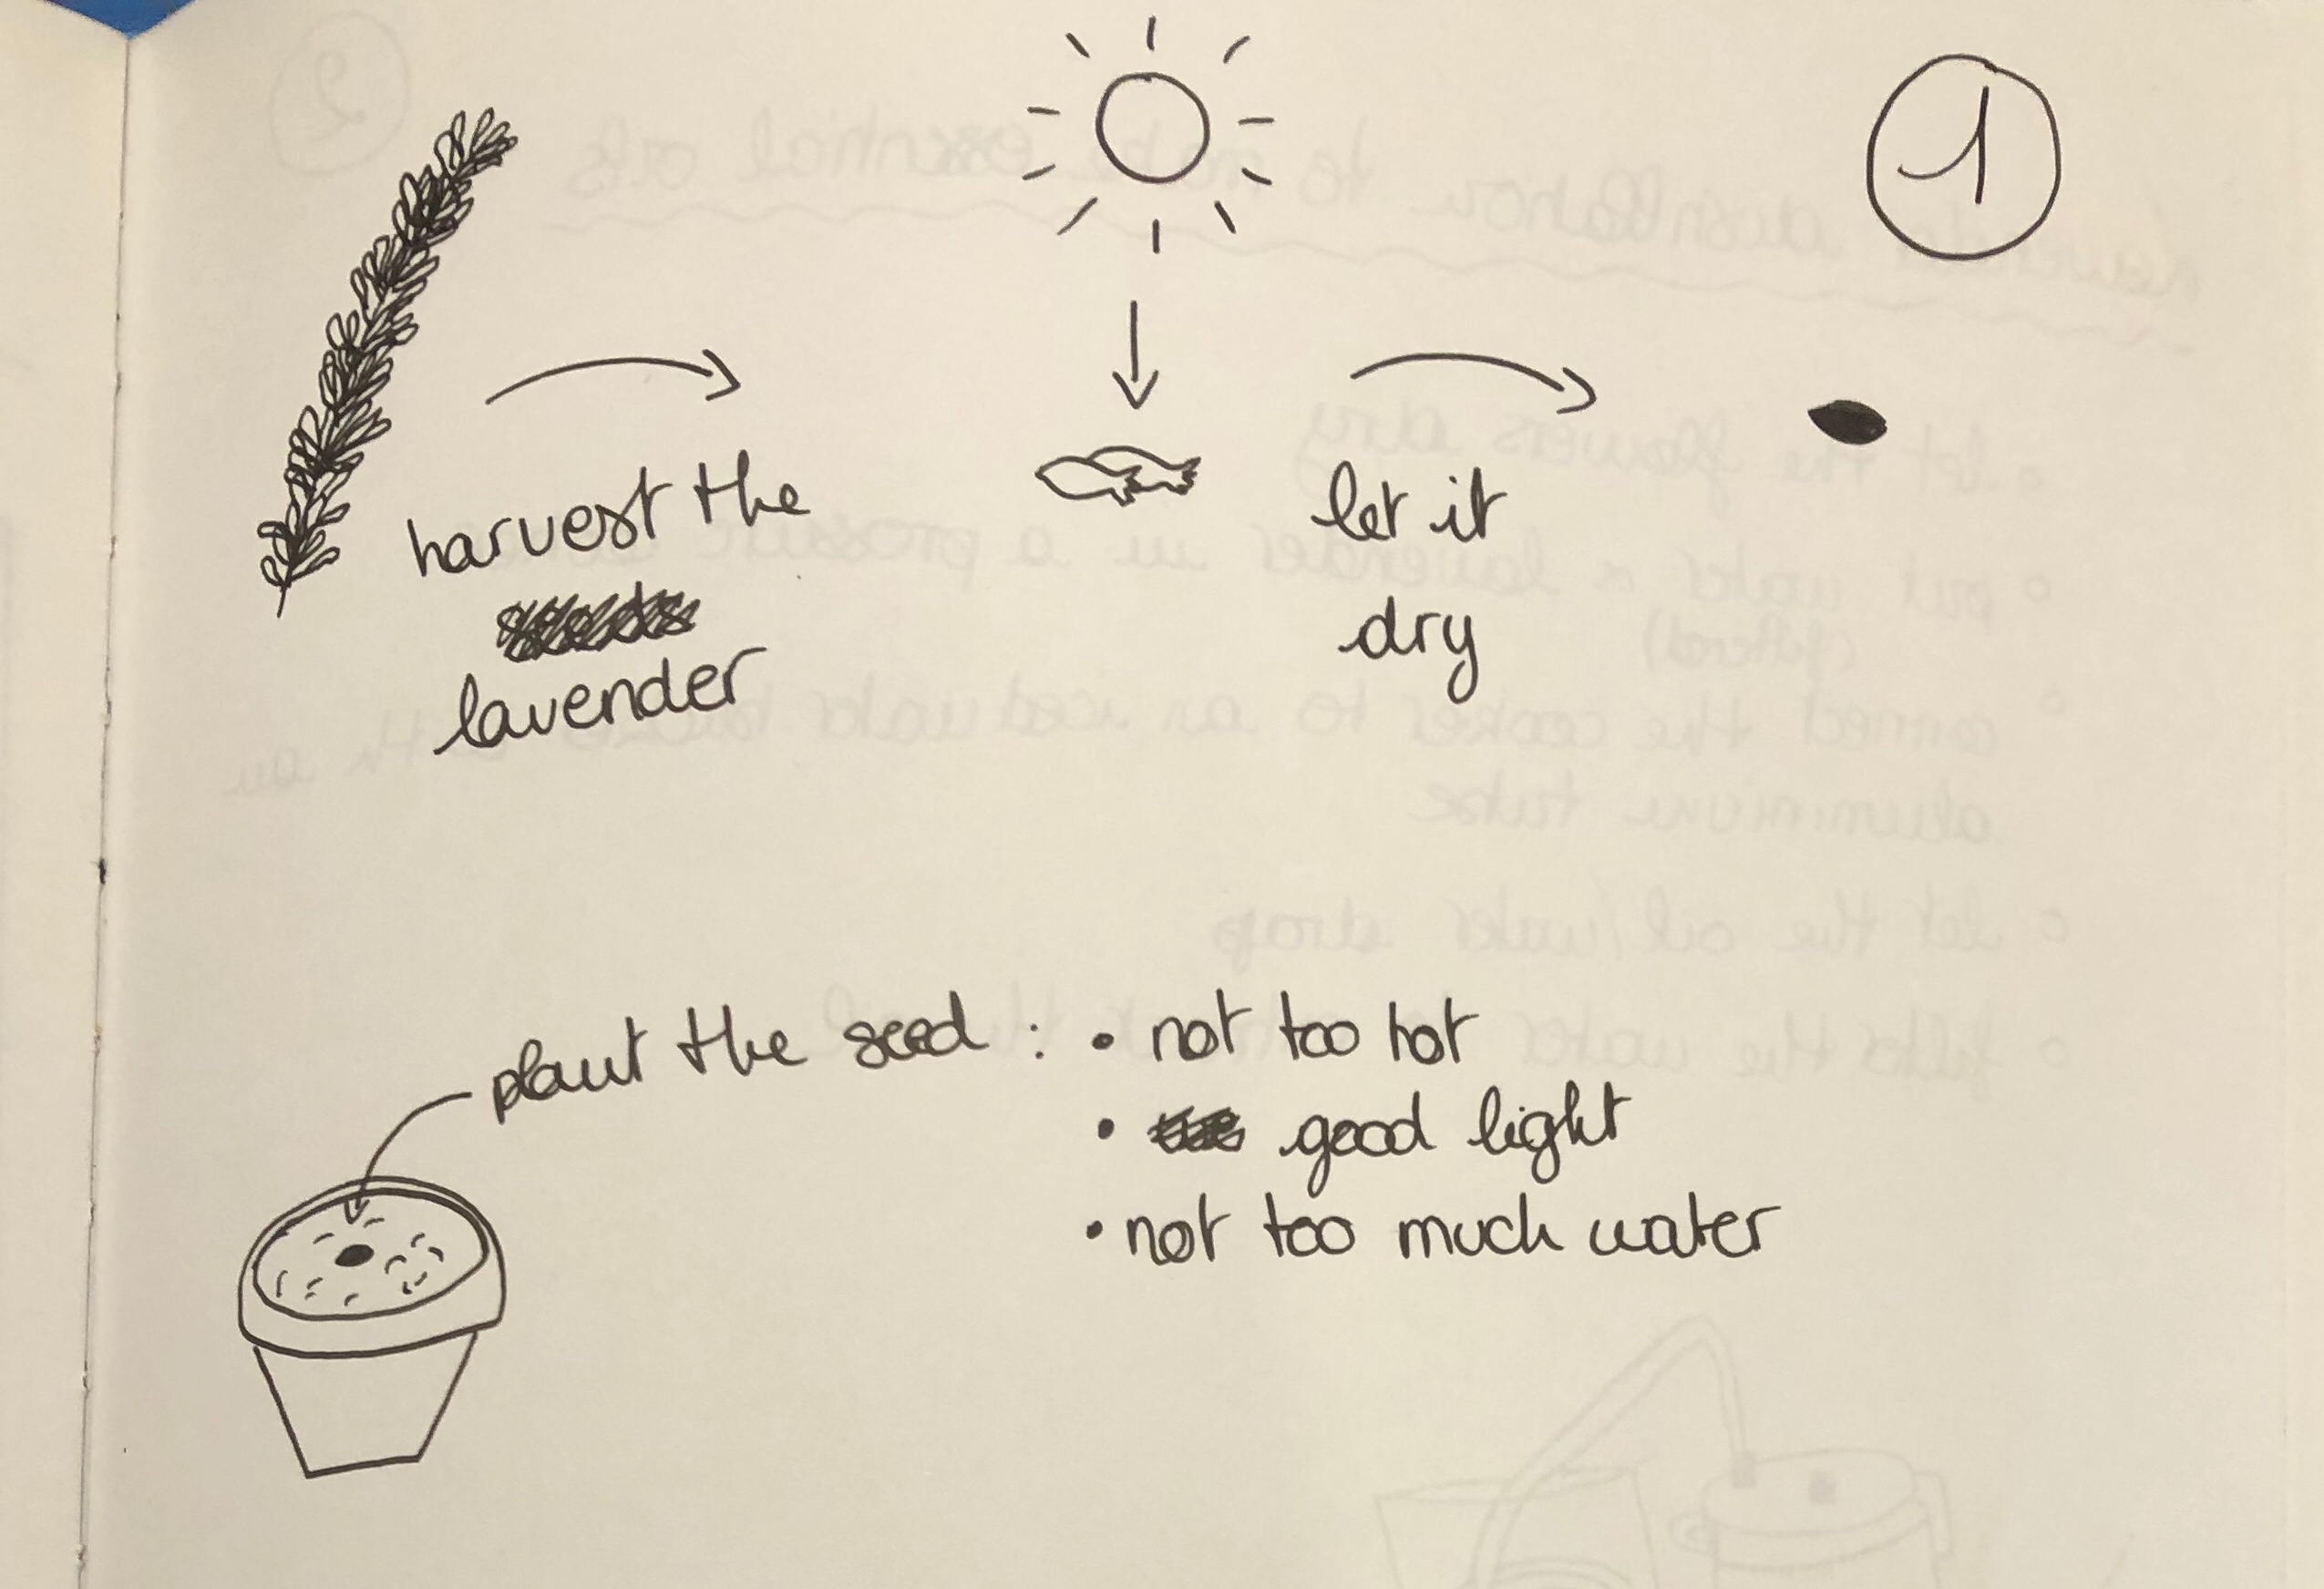 1
harvest the
seeds
lavender
let it
dry
plant the seed : • not too hot
• good light
• not too much water